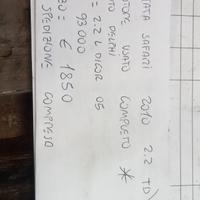 TATA SAFARI 2010 2.2 TD)
TORE USATO COMPLETO *
TO DELPHI
= 2.2 L DICOR 05
93000
ZO: € 1850
SPEDIZIONE COMPRESA